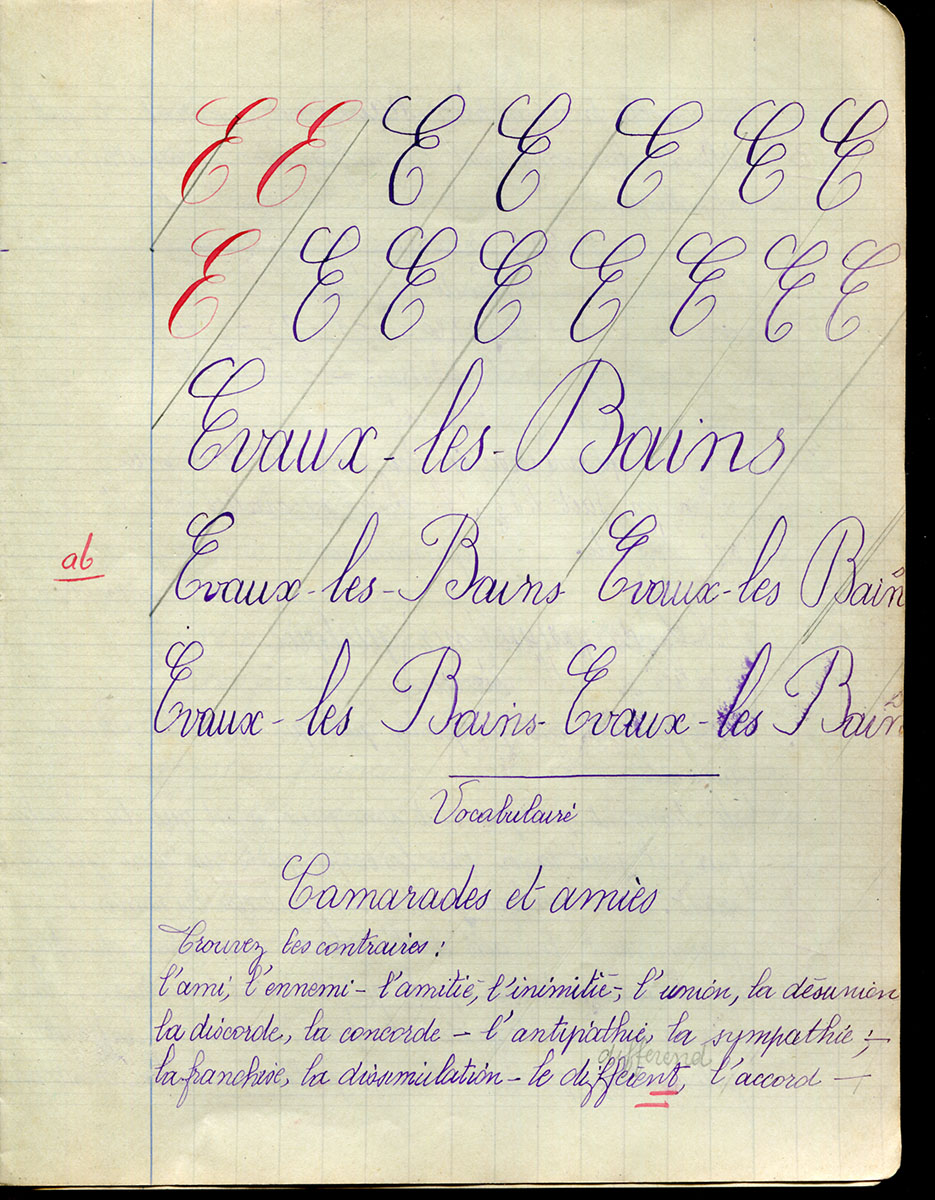 E E E E E E E
E E E E E E E E
Evaux-les-Bains
ab
Evaux-les-Bains Evaux-les Bains
Evaux-les Bains-Evaux-les Bains
Vocabulaire
Camarades et amies
Trouvez les contraires :
l'ami, l'ennemi - l'amitié, l'inimitié -, l'union, la désunion
la discorde, la concorde - l'antipathie, la sympathie ; -
différend
la franchise, la dissimulation - le différent, l'accord -